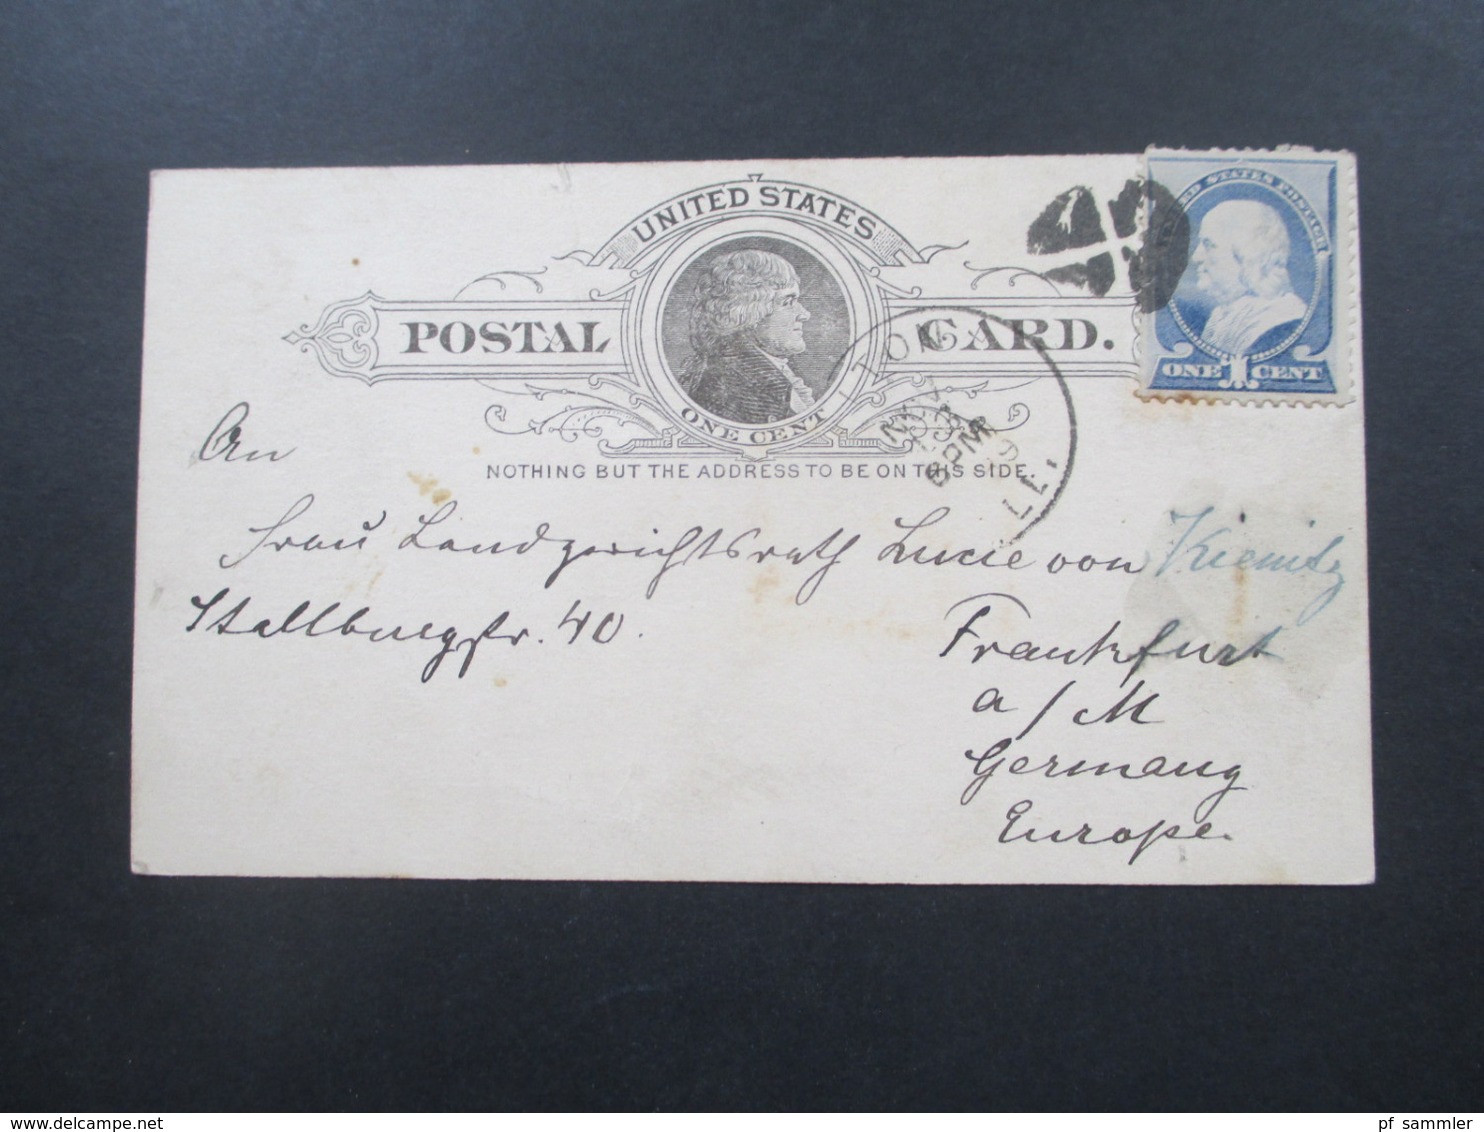 UNITED STATES POSTAGE
ONE CENT
UNITED STATES
POSTAL CARD.
ONE CENT
NOTHING BUT THE ADDRESS TO BE ON THIS SIDE.
NOV
6 PM
ILL.
An
Frau Landgerichtsrath Lucie von Kienitz
Stallburgstr. 40.
Frankfurt
a/M
Germany
Europe.
pf_sammler